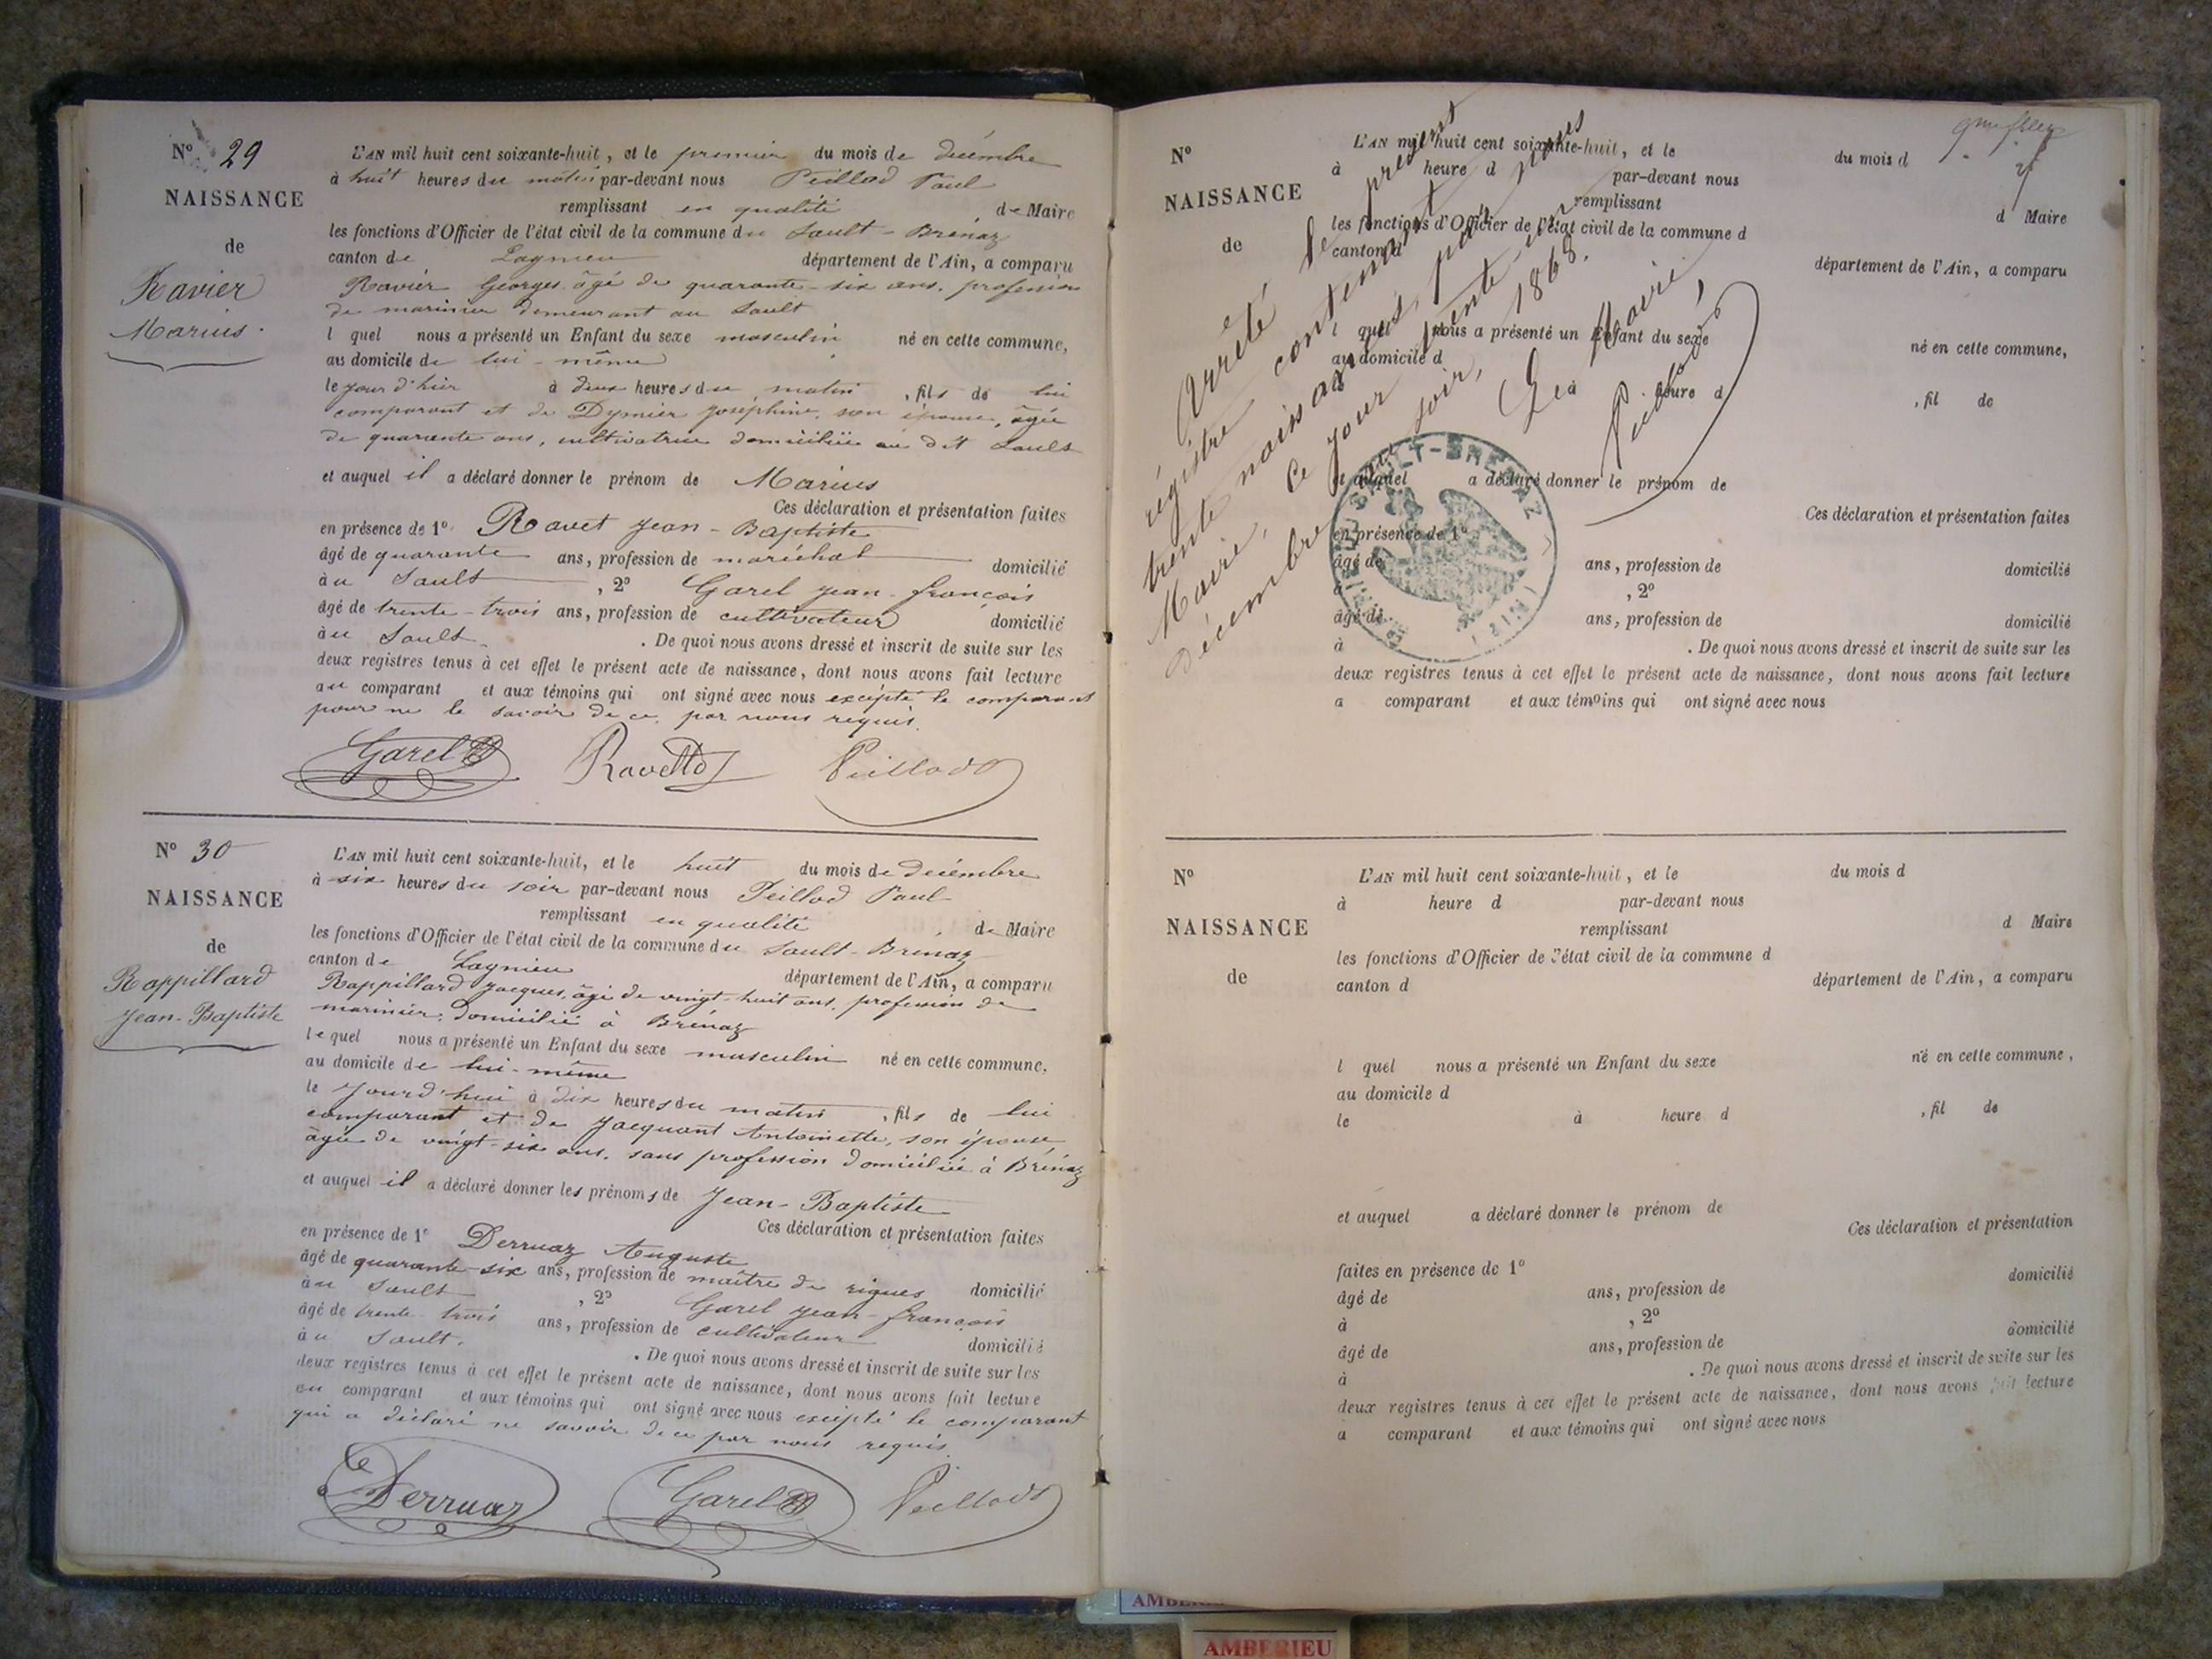 N° 29
NAISSANCE
de
Ravier
Marius.
L'AN mil huit cent soixante-huit, et le premier du mois de décembre
à huit heures du matin par-devant nous Peillod Paul
remplissant en qualité de Maire
les fonctions d'Officier de l'état civil de la commune du Sault-Brénaz
canton de Lagnieu département de l'Ain, a comparu
Ravier Georges âgé de quarante-six ans, profession
de marinier demeurant au Sault
l quel nous a présenté un Enfant du sexe masculin né en cette commune,
au domicile de lui-même
le jour d'hier à deux heures du matin, fils de lui
comparant et de Dymier Joséphine, son épouse, âgée
de quarante ans, cultivatrice domiciliée au dit Sault
et auquel il a déclaré donner le prénom de Marius
Ces déclaration et présentation faites
en présence de 1° Ravet Jean-Baptiste
âgé de quarante ans, profession de maréchal domicilié
àu Sault, 2° Garel Jean-françois
âgé de trente-trois ans, profession de cultivateur domicilié
àu Sault. De quoi nous avons dressé et inscrit de suite sur les
deux registres tenus à cet effet le présent acte de naissance, dont nous avons fait lecture
au comparant et aux témoins qui ont signé avec nous excepté le comparant
pour ne le savoir de ce par nous requis.
Garel Peillod
N° 30
NAISSANCE
de
Rappillard
Jean-Baptiste
L'AN mil huit cent soixante-huit, et le huit du mois de décembre
à six heures du soir par-devant nous Peillod Paul
remplissant en qualité de Maire
les fonctions d'Officier de l'état civil de la commune du Sault-Brénaz
canton de Lagnieu département de l'Ain, a comparu
Rappillard Jacques, âgé de vingt-huit ans, profession de
marinier, domicilié à Brénaz
lequel nous a présenté un Enfant du sexe masculin né en cette commune,
au domicile de lui-même
le jourd'hui à dix heures du matin, fils de lui
comparant et de Jacquant Antoinette, son épouse
âgée de vingt-six ans, sans profession domiciliée à Brénaz
et auquel il a déclaré donner les prénoms de Jean-Baptiste
Ces déclaration et présentation faites
en présence de 1° Derruaz Auguste
âgé de quarante-six ans, profession de maître de rigues domicilié
àu Sault, 2° Garel Jean-françois
âgé de trente-trois ans, profession de cultivateur domicilié
àu Sault. De quoi nous avons dressé et inscrit de suite sur les
deux registres tenus à cet effet le présent acte de naissance, dont nous avons fait lecture
au comparant et aux témoins qui ont signé avec nous excepté le comparant
qui a déclaré ne savoir de ce par nous requis.
Derruaz Garel Peillod
N°
NAISSANCE
de
L'AN mil huit cent soixante-huit, et le du mois d
à heure d par-devant nous
remplissant d Maire
les fonctions d'Officier de l'état civil de la commune d
canton d département de l'Ain, a comparu
l quel nous a présenté un Enfant du sexe né en cette commune,
au domicile d
à heure d, fil de
et auquel a déclaré donner le prénom de
Ces déclaration et présentation faites
en présence de 1°
âgé de ans, profession de domicilié
à, 2°
âgé de ans, profession de domicilié
à. De quoi nous avons dressé et inscrit de suite sur les
deux registres tenus à cet effet le présent acte de naissance, dont nous avons fait lecture
a comparant et aux témoins qui ont signé avec nous
Arrêté le présent
régistre contenant
trente naissances, par nous
Maire, ce jour trente-un
décembre au soir, 1868.
Le Maire,
Peillod
SAULT-BRÉNAZ
(AIN)
N°
NAISSANCE
de
L'AN mil huit cent soixante-huit, et le du mois d
à heure d par-devant nous
remplissant d Maire
les fonctions d'Officier de l'état civil de la commune d
canton d département de l'Ain, a comparu
l quel nous a présenté un Enfant du sexe né en cette commune,
au domicile d
le à heure d, fil de
et auquel a déclaré donner le prénom de
Ces déclaration et présentation
faites en présence de 1° domicilié
âgé de ans, profession de
à, 2° domicilié
âgé de ans, profession de
à. De quoi nous avons dressé et inscrit de suite sur les
deux registres tenus à cet effet le présent acte de naissance, dont nous avons fait lecture
a comparant et aux témoins qui ont signé avec nous
AMBERIEU